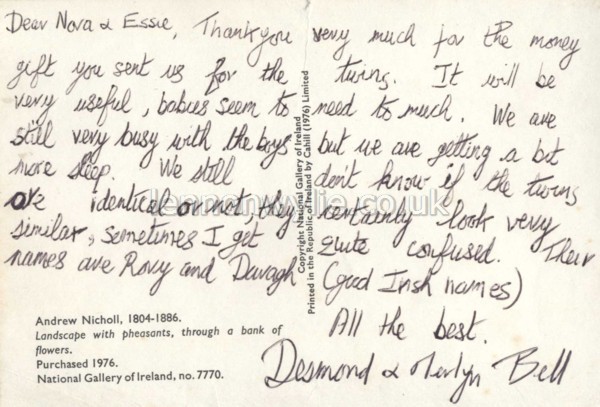 Dear Nora & Essie, Thankyou very much for the money
gift you sent us for the twins. It will be
very useful, babies seem to need to much. We are
still very busy with the boys but we are getting a bit
more sleep. We still don't know if the twins
are identical or not, they certainly look very
similar, sometimes I get quite confused. Their
names are Rory and Davagh (good Irish names)
All the best.
Desmond & Merlyn Bell
Andrew Nicholl, 1804-1886.
Landscape with pheasants, through a bank of
flowers.
Purchased 1976.
National Gallery of Ireland, no. 7770.
Copyright National Gallery of Ireland
Printed in the Republic of Ireland by Cahill (1976) Limited
lennonwylie.co.uk